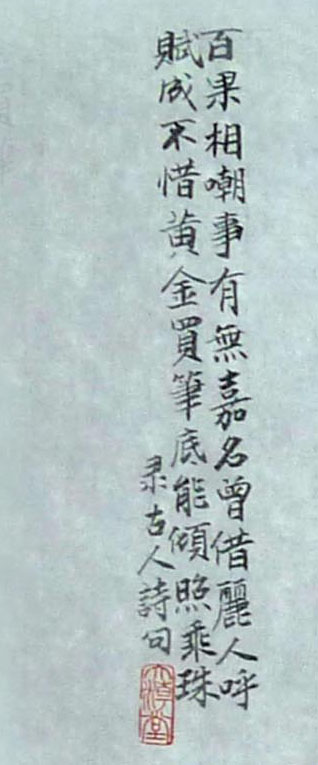 百果相嘲事有無嘉名曾借麗人呼
賦成不惜黄金買筆底能傾照乘珠
录古人詩句